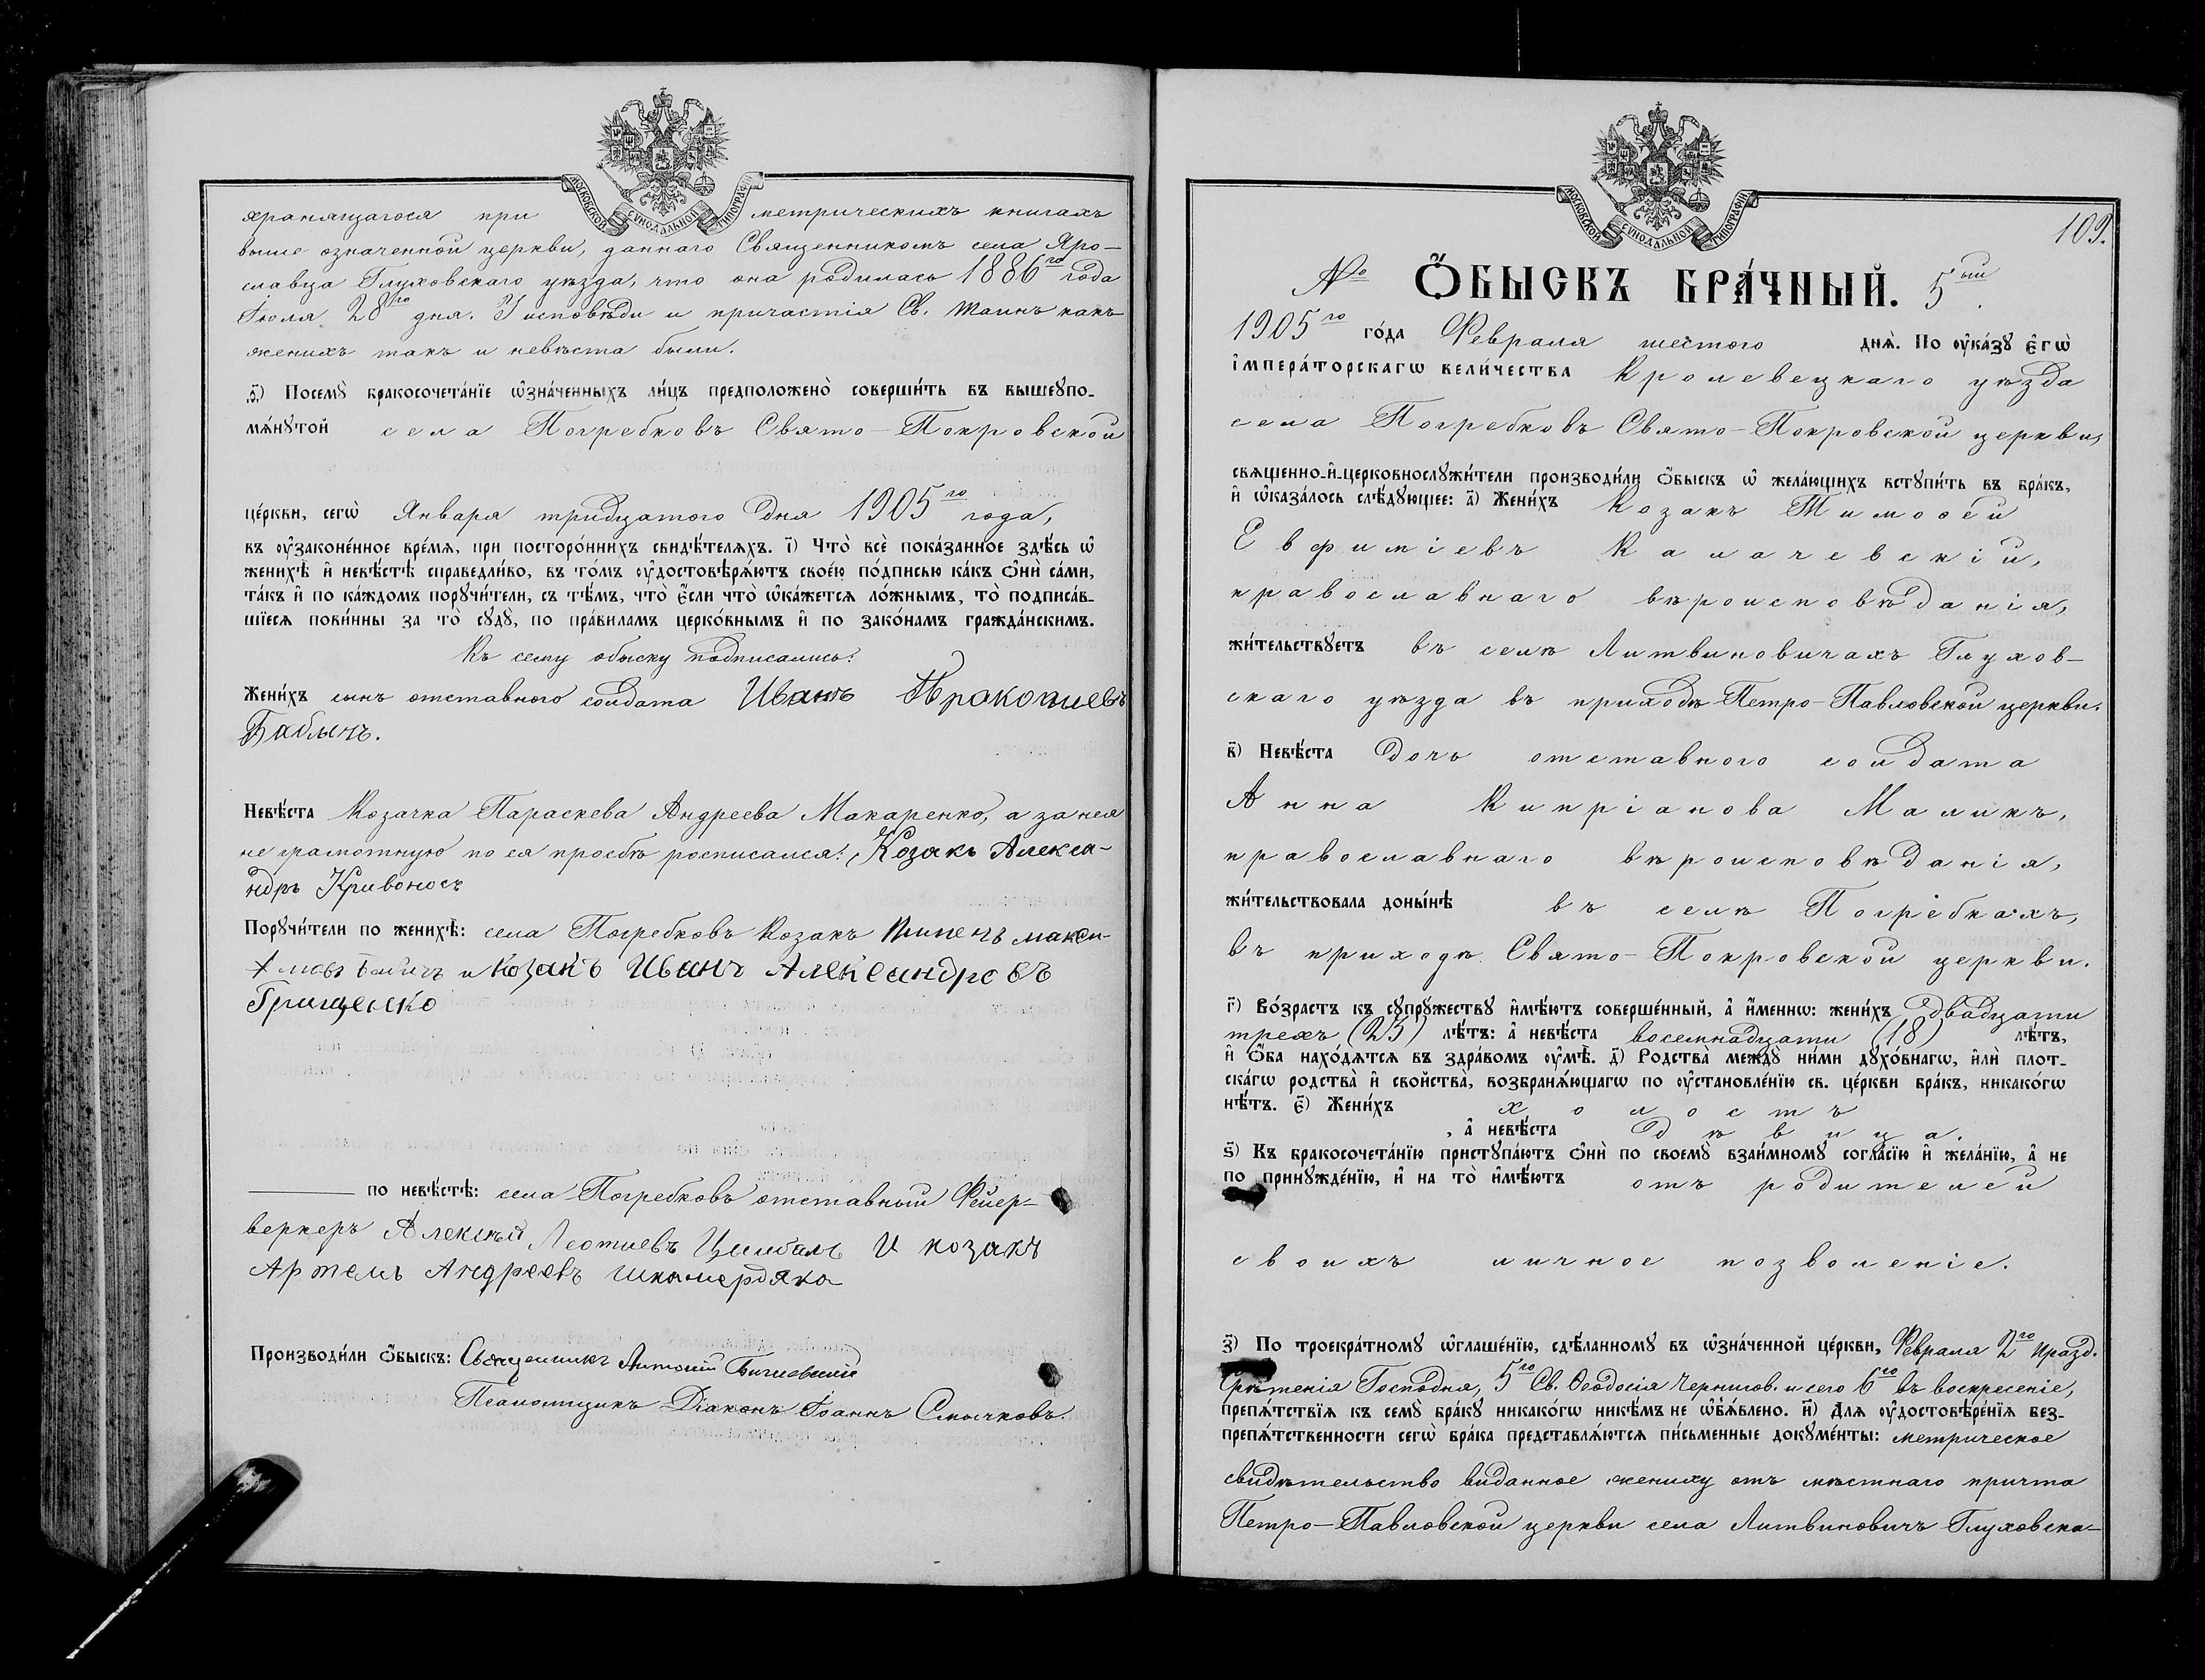 МОСКОВСКОЙ СУНОДАЛЬНОЙ ТИПОГРАФІИ
хранящагося при метрическихъ книгахъ
выше означенной церкви, даннаго Священникомъ села Яро-
славца Глуховскаго уѣзда, что она родилась 1886го года
Іюля 28го дня. У исповѣди и причастія Св. Таинъ какъ
женихъ такъ и невѣста были.
Посемꙋ̀ бракосочета́нїе ѡ҆зна́ченныхъ ли́цъ предположено̀ соверши́ть въ вышеꙋпо-
мѧ́нꙋтой села Погребковъ Свято-Покровской
це́ркви, сегѡ̀ Января тридцатого дня 1905го года,
въ ᲂу҆законе́нное вре́мѧ, при посторо́ннихъ свидѣ́телѧхъ. і҃) Что̀ всѐ пока́занное здѣ́сь ѡ҆
женихѣ̀ и҆ невѣ́стѣ справедли́во, въ то́мъ ᲂу҆достовѣрѧ́ютъ свое́ю по́дписью ка́къ ѻ҆нѝ са́ми,
та́къ и҆ по ка́ждомъ порꙋчи́тели, съ тѣ́мъ, что̀ є҆́сли что̀ ѡ҆ка́жетсѧ ло́жнымъ, то̀ подписа́в-
шїесѧ пови́нны за то̀ сꙋдꙋ̀, по пра́виламъ церко́внымъ и҆ по зако́намъ гражда́нскимъ.
Къ сему обыску подписались:
Жени́хъ сынъ отставного солдата Иванъ Прокопиевъ
Баблычъ.
Невѣ́ста Козачка Параскева Андреева Макаренко, а за нея
не грамотную по ея просьбѣ росписался: Козакъ Алекса-
ндръ Кривоносъ
Порꙋчи́тели по женихѣ̀: села Погребковъ Козакъ макси-
и козакъ Иванъ Александровъ
Грищенко
по невѣ́стѣ: села Погребковъ отставный Фейер-
веркеръ Алексѣй Леотиевъ Цимбалъ И козакъ
Артемъ Андреевъ
Производи́ли ѻ҆́быскъ: Священникъ Антоній
Псаломщикъ Діаконъ Іоаннъ Смычковъ.
МОСКОВСКОЙ СУНОДАЛЬНОЙ ТИПОГРАФІИ
109.
№ Ѻ҆́БЫСКЪ БРА́ЧНЫЙ. 5ый
1905го го́да Февраля шестого днѧ̀. По ᲂу҆ка́зꙋ є҆гѡ̀
і҆мпера́торскагѡ вели́чества Кролевецкаго уѣзда
села Погребковъ Свято-Покровской церкви,
свѧщенно-и҆-церковнослꙋжи́тели производи́ли ѻ҆́быскъ ѡ҆ жела́ющихъ встꙋпи́ть въ бра́къ,
и҆ ѡ҆каза́лось слѣ́дꙋющее: а҃) Жени́хъ Козакъ Тимоѳей
Евфиміевъ Калачевскій,
православнаго вѣроисповѣданія,
жи́тельствꙋетъ въ селѣ Литвиновичахъ Глухов-
скаго уѣзда въ приходѣ Петро-Павловской церкви.
в҃) Невѣ́ста дочь отставного солдата
Анна Кипріанова Маликъ,
православнаго вѣроисповѣданія,
жи́тельствовала доны́нѣ въ селѣ Погребкахъ,
въ приходѣ Свято-Покровской церкви.
г҃) Во́зрастъ къ сꙋпрꙋ́жествꙋ и҆мѣ́ютъ соверше́нный, а҆̀ и҆́менно: жени́хъ двадцати
трехъ (23) лѣ́тъ: а҆̀ невѣ́ста восемнадцати (18) лѣ́тъ,
и҆ ѻ҆́ба нахо́дѧтсѧ въ здра́вомъ ᲂу҆мѣ̀. д҃) Родства̀ междꙋ̀ ни́ми дꙋхо́внагѡ, и҆лѝ плот-
ска́гѡ родства̀ и҆ свойства̀, возбранѧ́ющагѡ по ᲂу҆становле́нїю св. це́ркви бра́къ, никако́гѡ
нѣ́тъ. є҃) Жени́хъ холостъ
, а҆̀ невѣ́ста дѣвица.
ѕ҃) Къ бракосочета́нїю пристꙋпа́ютъ ѻ҆нѝ по своемꙋ̀ взаи́мномꙋ согла́сїю и҆ жела́нїю, а҆̀ не
по принꙋжде́нїю, и҆ на то̀ и҆мѣ́ютъ отъ родителей
своихъ личное позволеніе.
з҃) По троекра́тномꙋ ѡ҆глаше́нїю, сдѣ́ланномꙋ въ ѡ҆зна́ченной це́ркви, Февраля 2го празд.
Срѣтенія Господня, 5го Св. Ѳеодосія Чернигов. и сего 6го въ воскресеніе,
препѧ́тствїѧ къ семꙋ̀ бра́кꙋ никако́гѡ никѣ́мъ не ѡ҆бъѧ́влено. и҃) Длѧ ᲂу҆достовѣре́нїѧ без-
препѧ́тственности сегѡ̀ бра́ка представлѧ́ютсѧ пи́сьменные докꙋме́нты: метрическое
свидѣтельство виданное жениху отъ мѣстнаго причта
Петро-Павловской церкви села Литвиновичъ Глуховска-